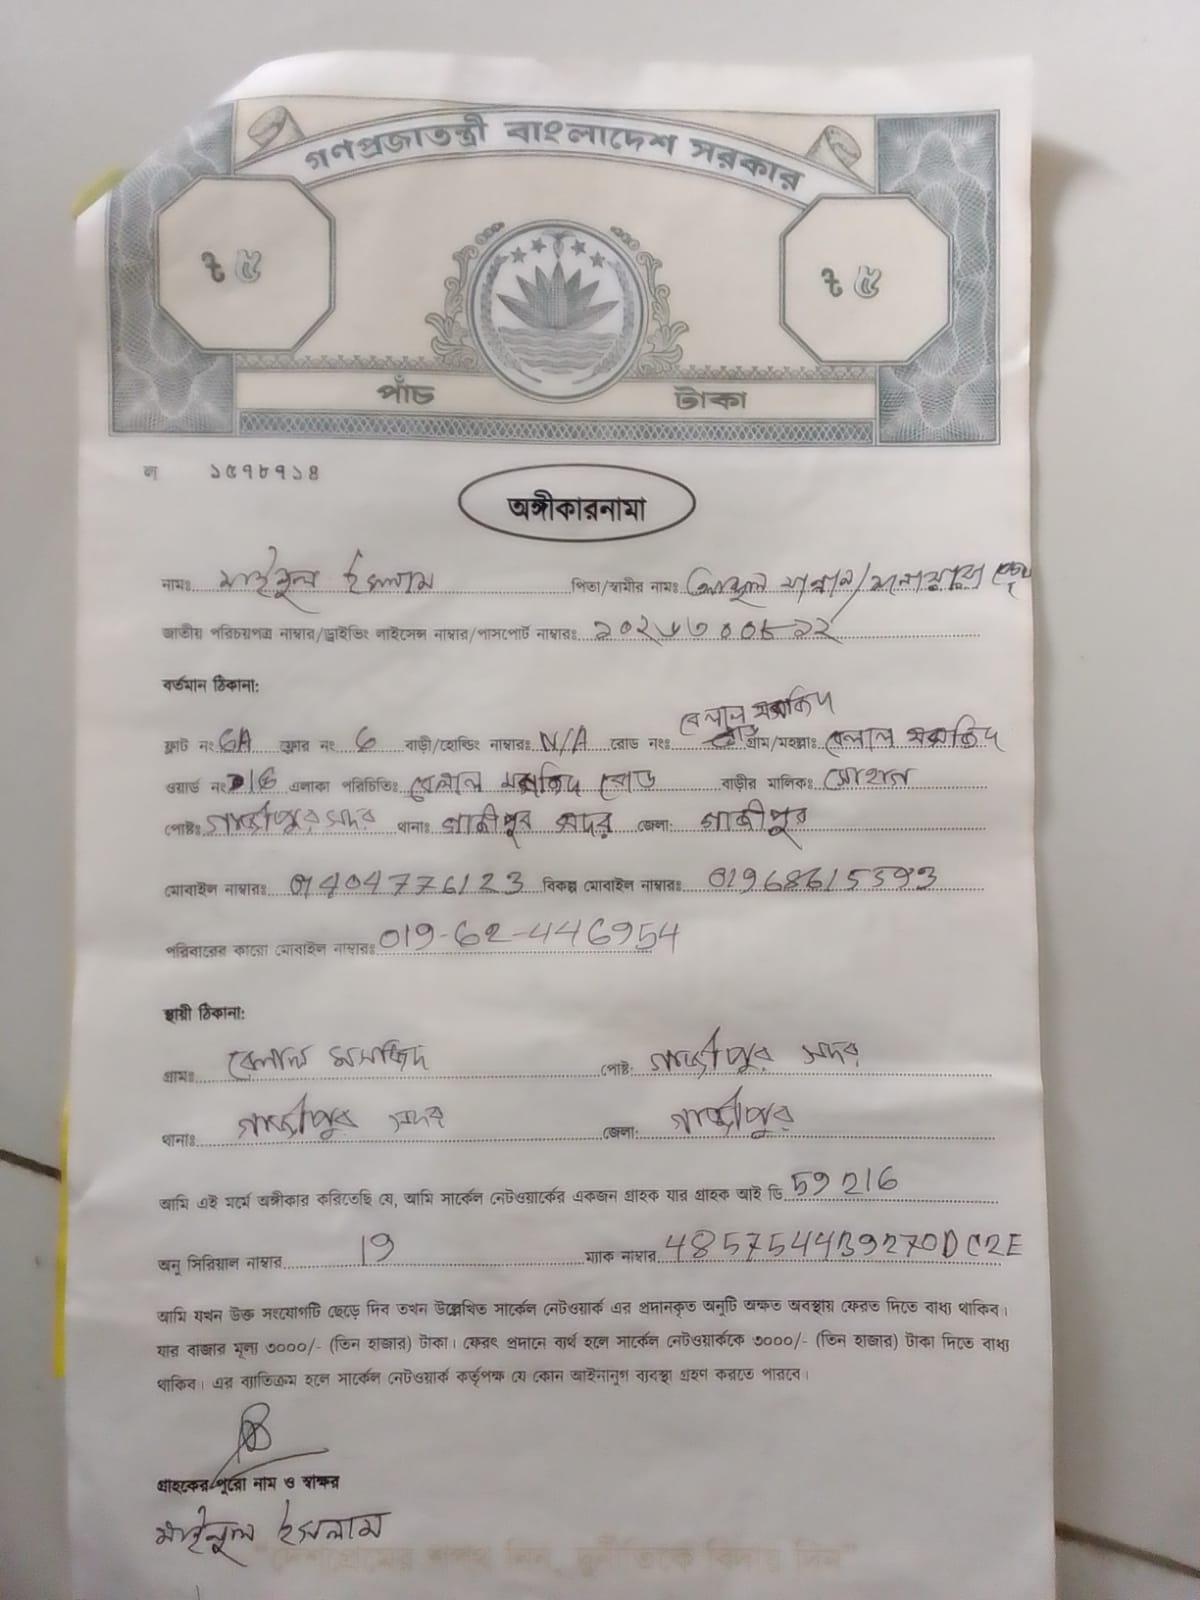 গণপ্রজাতন্ত্রী বাংলাদেশ সরকার
৳ ৫
৳ ৫
পাঁচ টাকা
ল ১৫৭৮৭১৪
অঙ্গীকারনামা
নামঃ মাইনুল ইসলাম পিতা/স্বামীর নামঃ মান্নান/মনোয়ারা
জাতীয় পরিচয়পত্র নাম্বার/ড্রাইভিং লাইসেন্স নাম্বার/পাসপোর্ট নাম্বারঃ
বর্তমান ঠিকানা:
বেলাল মসজিদ
ফ্লাট নং 6A ফ্লোর নং 6 বাড়ী/হোল্ডিং নাম্বারঃ N/A রোড নংঃ গ্রাম/মহল্লাঃ বেলাল মসজিদ
ওয়ার্ড নং এলাকা পরিচিতিঃ বেলাল মসজিদ রোড বাড়ীর মালিকঃ সোহাগ
পোষ্টঃ গাজীপুর সদর থানাঃ গাজীপুর সদর জেলা: গাজীপুর
মোবাইল নাম্বারঃ 01404776123 বিকল্প মোবাইল নাম্বারঃ 01968615393
পরিবারের কারো মোবাইল নাম্বারঃ 019-62-446954
স্থায়ী ঠিকানা:
গ্রামঃ বেলাল মসজিদ পোষ্ট: গাজীপুর সদর
থানাঃ গাজীপুর সদর জেলা: গাজীপুর
আমি এই মর্মে অঙ্গীকার করিতেছি যে, আমি সার্কেল নেটওয়ার্কের একজন গ্রাহক যার গ্রাহক আই ডি 59216
অনু সিরিয়াল নাম্বার 19 ম্যাক নাম্বার 4857544439270DC2E
আমি যখন উক্ত সংযোগটি ছেড়ে দিব তখন উল্লেখিত সার্কেল নেটওয়ার্ক এর প্রদানকৃত অনুটি অক্ষত অবস্থায় ফেরত দিতে বাধ্য থাকিব।
যার বাজার মূল্য ৩০০০/- (তিন হাজার) টাকা। ফেরৎ প্রদানে ব্যর্থ হলে সার্কেল নেটওয়ার্ককে ৩০০০/- (তিন হাজার) টাকা দিতে বাধ্য
থাকিব। এর ব্যাতিক্রম হলে সার্কেল নেটওয়ার্ক কর্তৃপক্ষ যে কোন আইনানুগ ব্যবস্থা গ্রহণ করতে পারবে।
গ্রাহকের পুরো নাম ও স্বাক্ষর
মাইনুল ইসলাম
"দেশপ্রেমের শপথ নিন, দুর্নীতিকে বিদায় দিন"